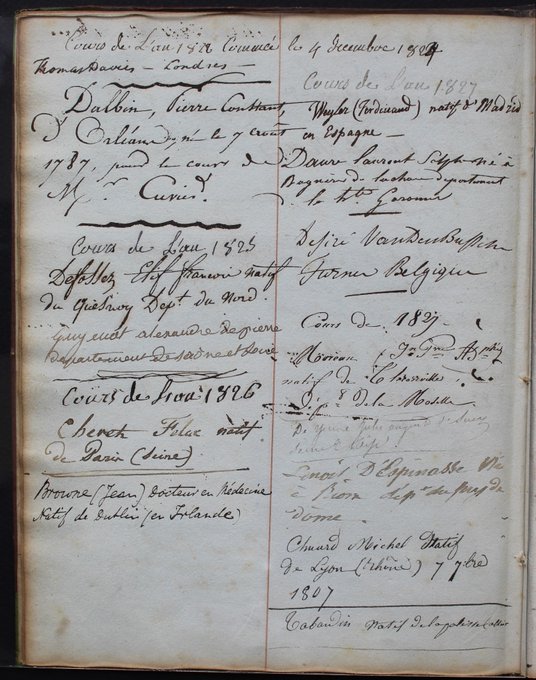 Cours de L'an 1823 Commencé le 4 decembre 1824
Thomas Davies - Londres -
Dalbin, Pierre Constant,
D'Orléans, né le 7 aout
1787, pour le cours de
Mr. Cuvier.
Cours de L'an 1825
Defossez Eloi francois natif
du Quesnoy Dept. du Nord.
Guyenot alexandre de pierre
departement de saone et Loire
Cours de L'an 1826
natif
de Paris (Seine)
Browne (Jean) Docteur en Médecine
Natif de dublin (en Irlande)
Cours de L'an 1827
Weyler (Ferdinand) natif de Madrid
en Espagne -
Daure Laurent né à
Bagnères de luchon departement
de la hte. Garonne
Desiré VandenBussche
Furnes Belgique
Cours de 1829
Moreau
natif de Thionville
de la Moselle
Lenoir D'Espinasse Né
à Riom dépt. du puy de
dôme.
Chuard Michel Natif
de Lyon (Rhône) 7 7bre
1807
Tabardin natif de lapalisse (allier